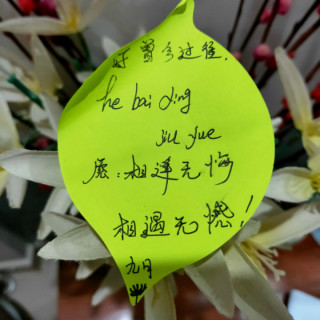 曾今过往.
he bai qing
jiu yue
愿:相逢无悔
相遇无憾!
九月